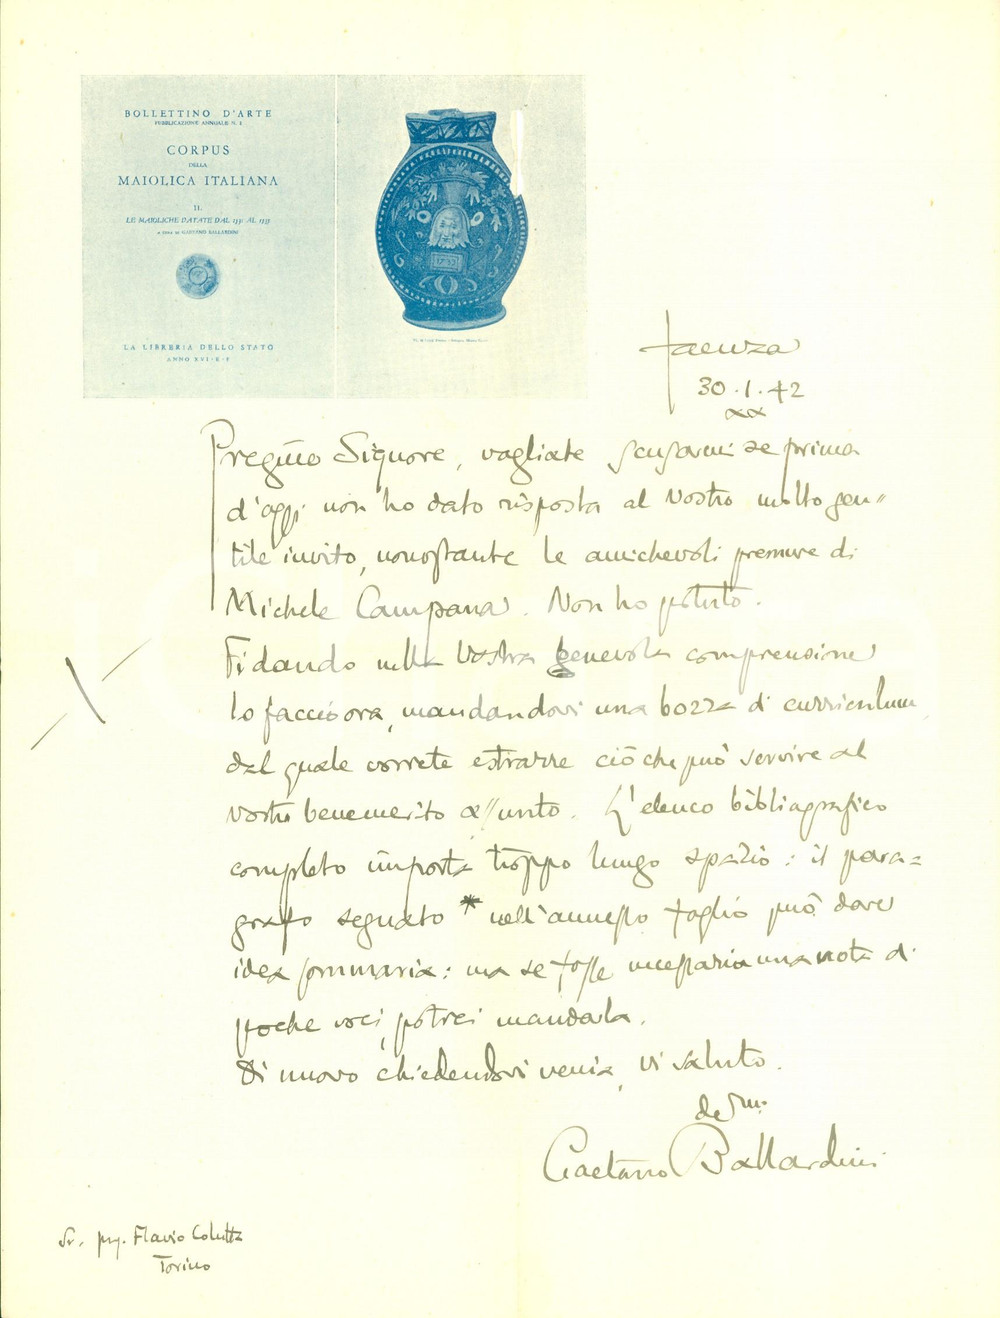 BOLLETTINO D'ARTE
PUBBLICAZIONE ANNUALE N. 1
CORPUS
DELLA
MAIOLICA ITALIANA
II.
LE MAIOLICHE DATATE DAL 1531 AL 1535
A CURA DI GAETANO BALLARDINI
LA LIBRERIA DELLO STATO
ANNO XVI · E · F
1532
Faenza
30 · 1 · 42
XX
Pregmo Signore, vogliate scusarmi se prima
d'oggi non ho dato risposta al vostro molto gen=
tile invito, nonostante le amichevoli premure di
Michele Campana. Non ho potuto.
Fidando nella Vostra benevola comprensione
lo faccio ora, mandandovi una bozza di curriculum
dal quale vorrete estrarre ciò che può servire al
vostro benemerito assunto. L'elenco bibliografico
completo importa troppo lungo spazio: il para=
grafo segnato * nell'annesso foglio può dare
idea sommaria: ma se fosse necessaria una nota di
poche voci, potrei mandarla.
Di nuovo chiedendovi venia, vi saluto.
devmo.
Gaetano Ballardini
Flavio Colutta
Torino